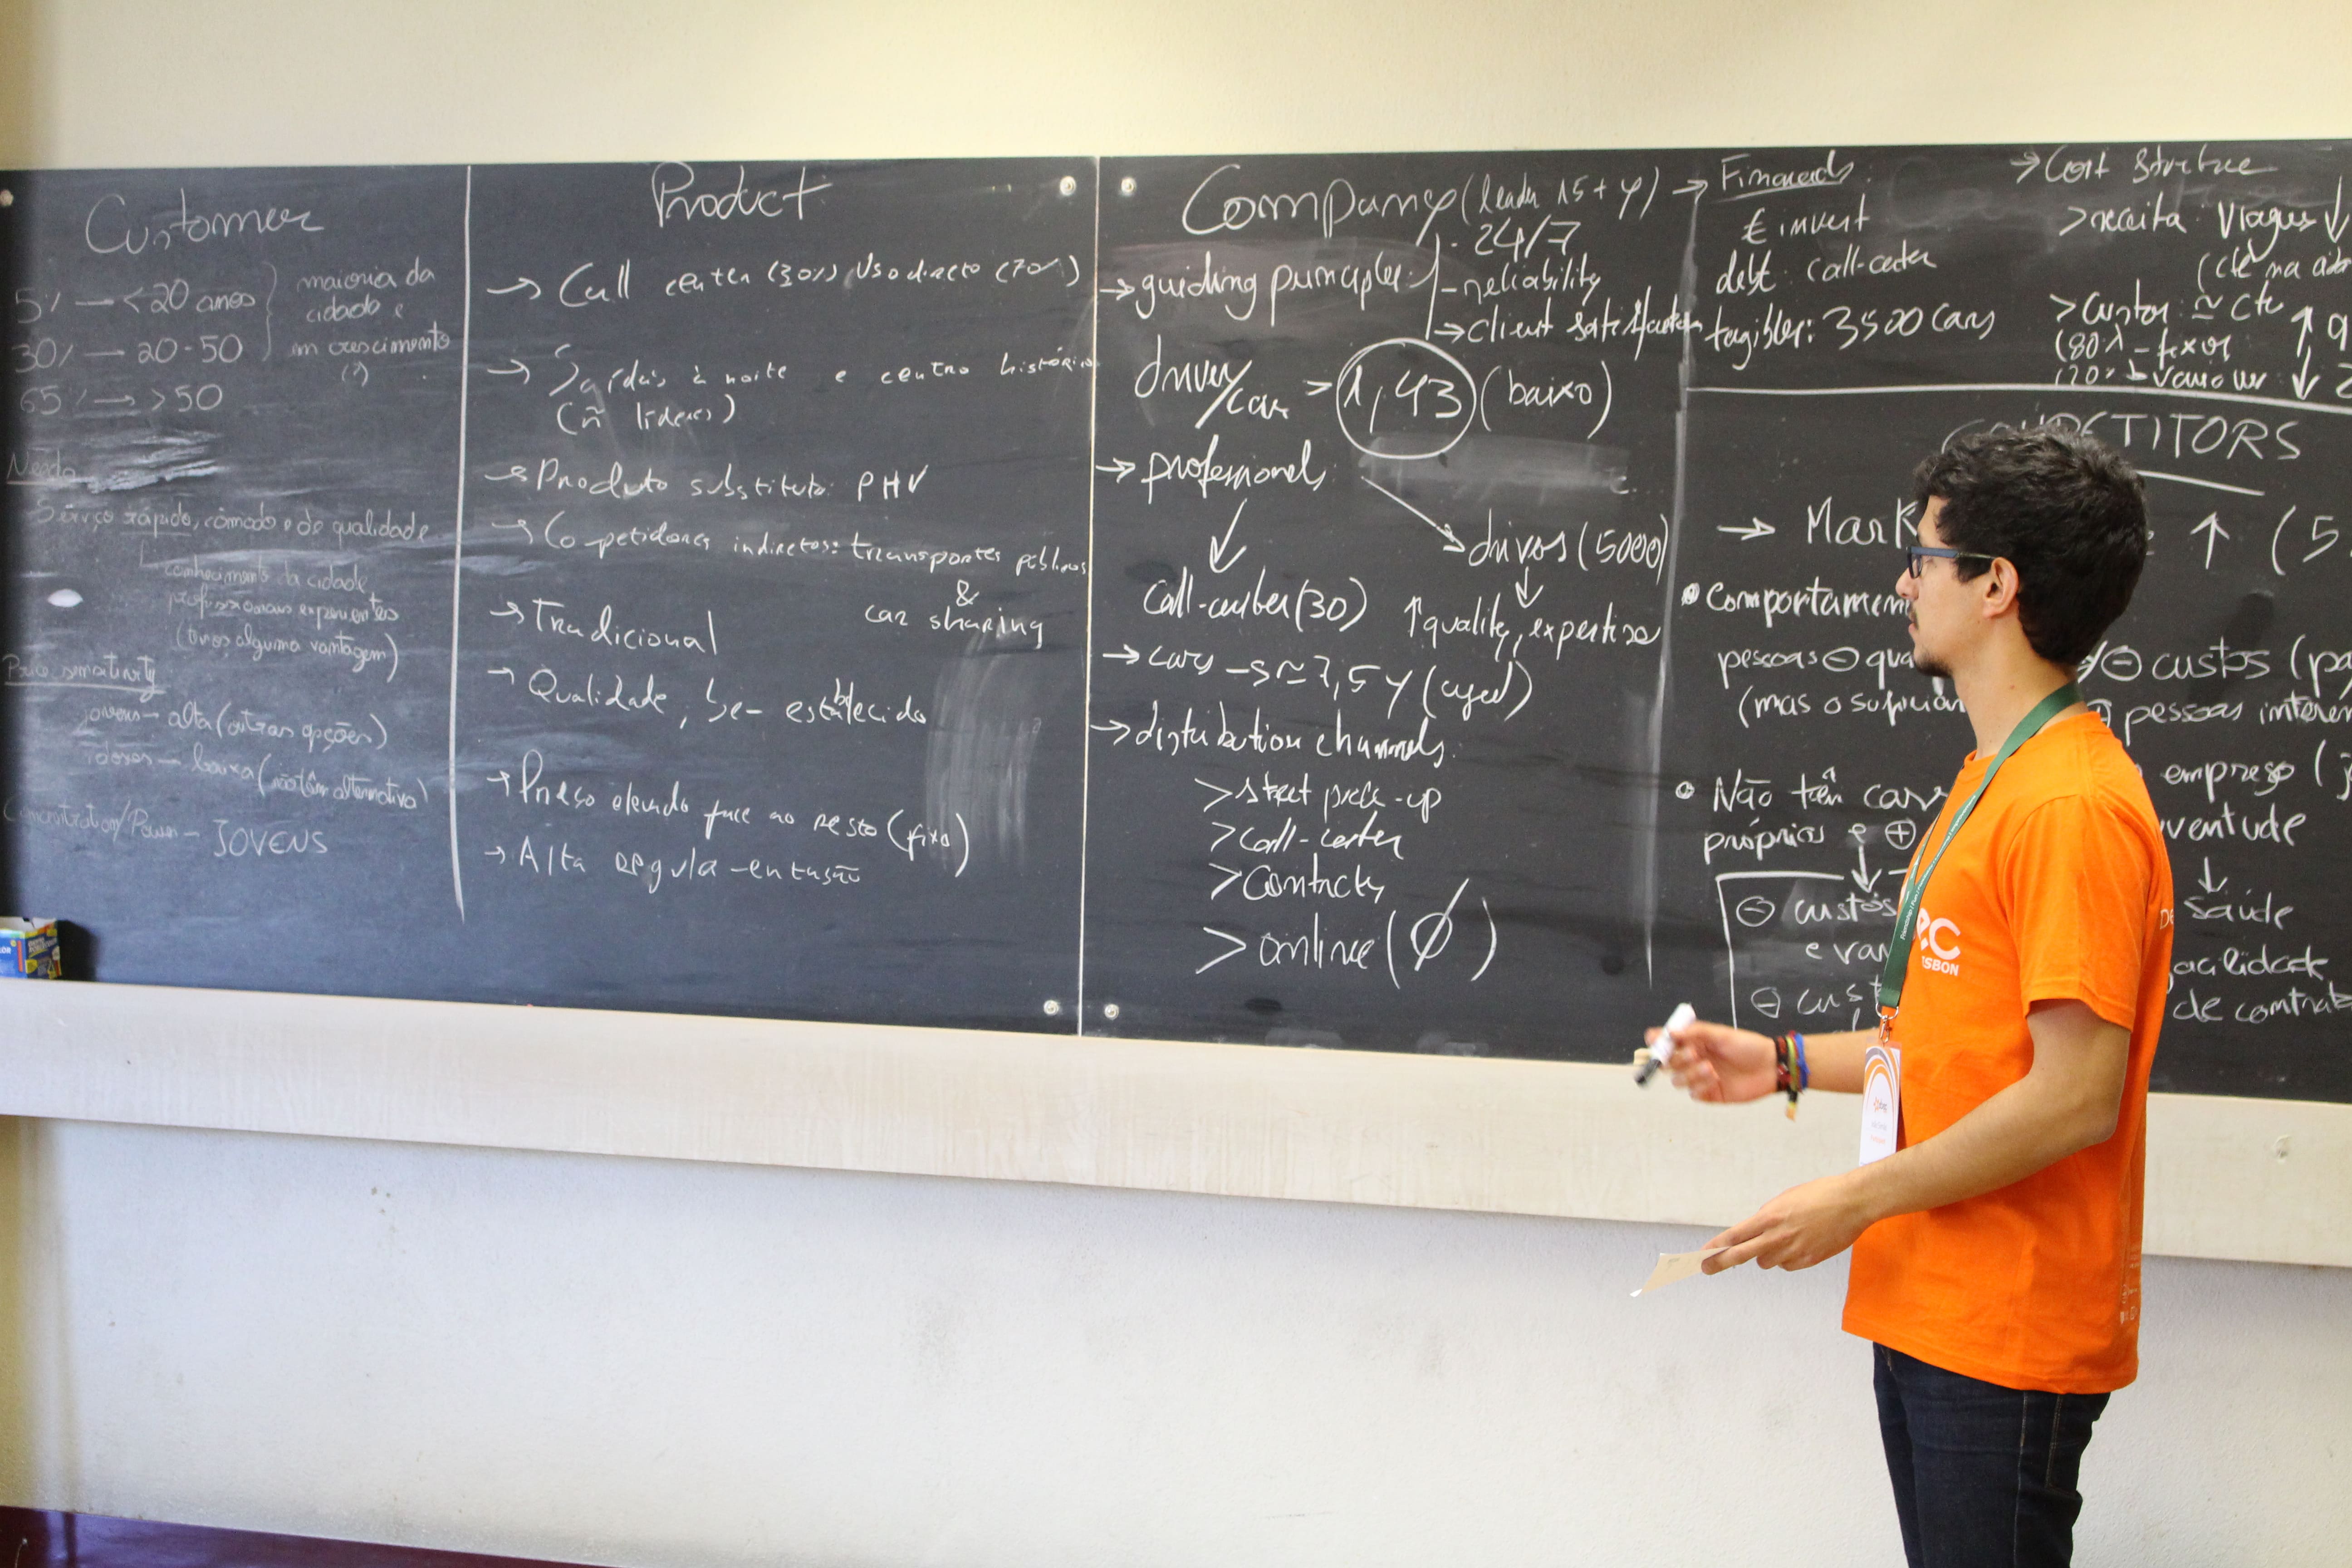 Customer
5% → <20 anos
30% → 20-50
65% → >50
maioria da
cidade e
em crescimento
(?)
Needs
Serviço rápido, cómodo e de qualidade
conhecimento da cidade,
profissionais experientes
alguma vantagem)
Price sensitivity
jovens - alta (outras opções)
idosos - baixa (não têm alternativa)
Concentration/Power - JOVENS
Product
→ Call center (30%) Uso directo (70%)
→ Saídas à noite e centro histórico
(ñ líderes)
→ Produto substituto: PHV
→ Competidores indiretos: transportes públicos
&
car sharing
→ Tradicional
→ Qualidade, bem estabelecido
→ Preço elevado face ao resto (fixo)
→ Alta regulamentação
Company (leader 15+y)
→ guiding principles:
- 24/7
- reliability
→ client satisfaction
driver/car → 1,43 (baixo)
→ professionals
call-center (30)
drivers (5000)
↑ quality, expertise
→ cars → ≃ 7,5 y (aged)
→ distribution channels:
> street pick-up
> call-center
> contacts
> online (∅)
→ Financials:
€ invest
debt: call-center
tagibles: 3500 cars
→ Cost structure
> receita: viagens ↓
> Custos ≃ cte
(80% - fixos
(20%
COMPETITORS
→ Mark
↑ (5
• comportamen
pessoas ⊖ qua
(mas o suficien
⊖ custos (pa
pessoas interes
• Não têm cars
próprios e ⊕
empreso (j
ventude
↓
saúde
⊖ custos
e var
⊖ cust
acilidade
de contrat
ec
ISBON